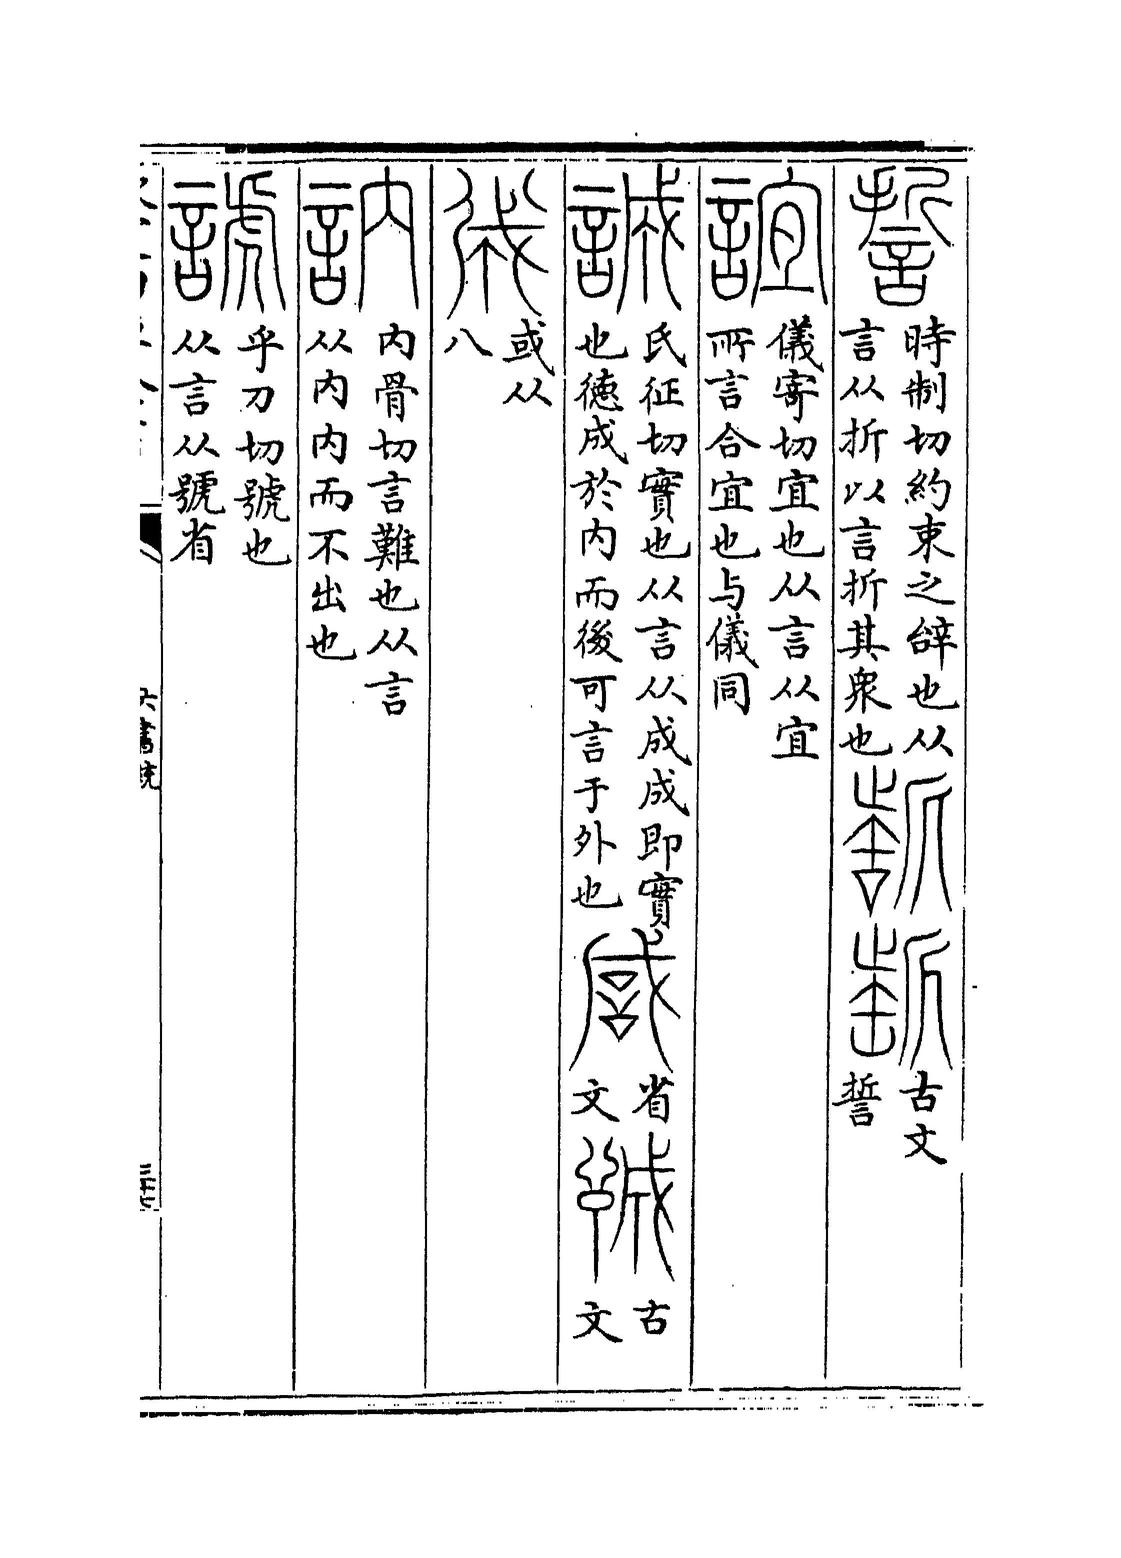 誓
時制切約束之辝也从
言从折以言折其衆也
古文
誓
誼
儀寄切宜也从言从宜
所言合宜也与儀同
誠
氏征切實也从言从成成即實
也德成於内而後可言于外也
省
文
古
文
或从
八
訥
内骨切言難也从言
从内内而不出也
乎刀切號也
从言从號省